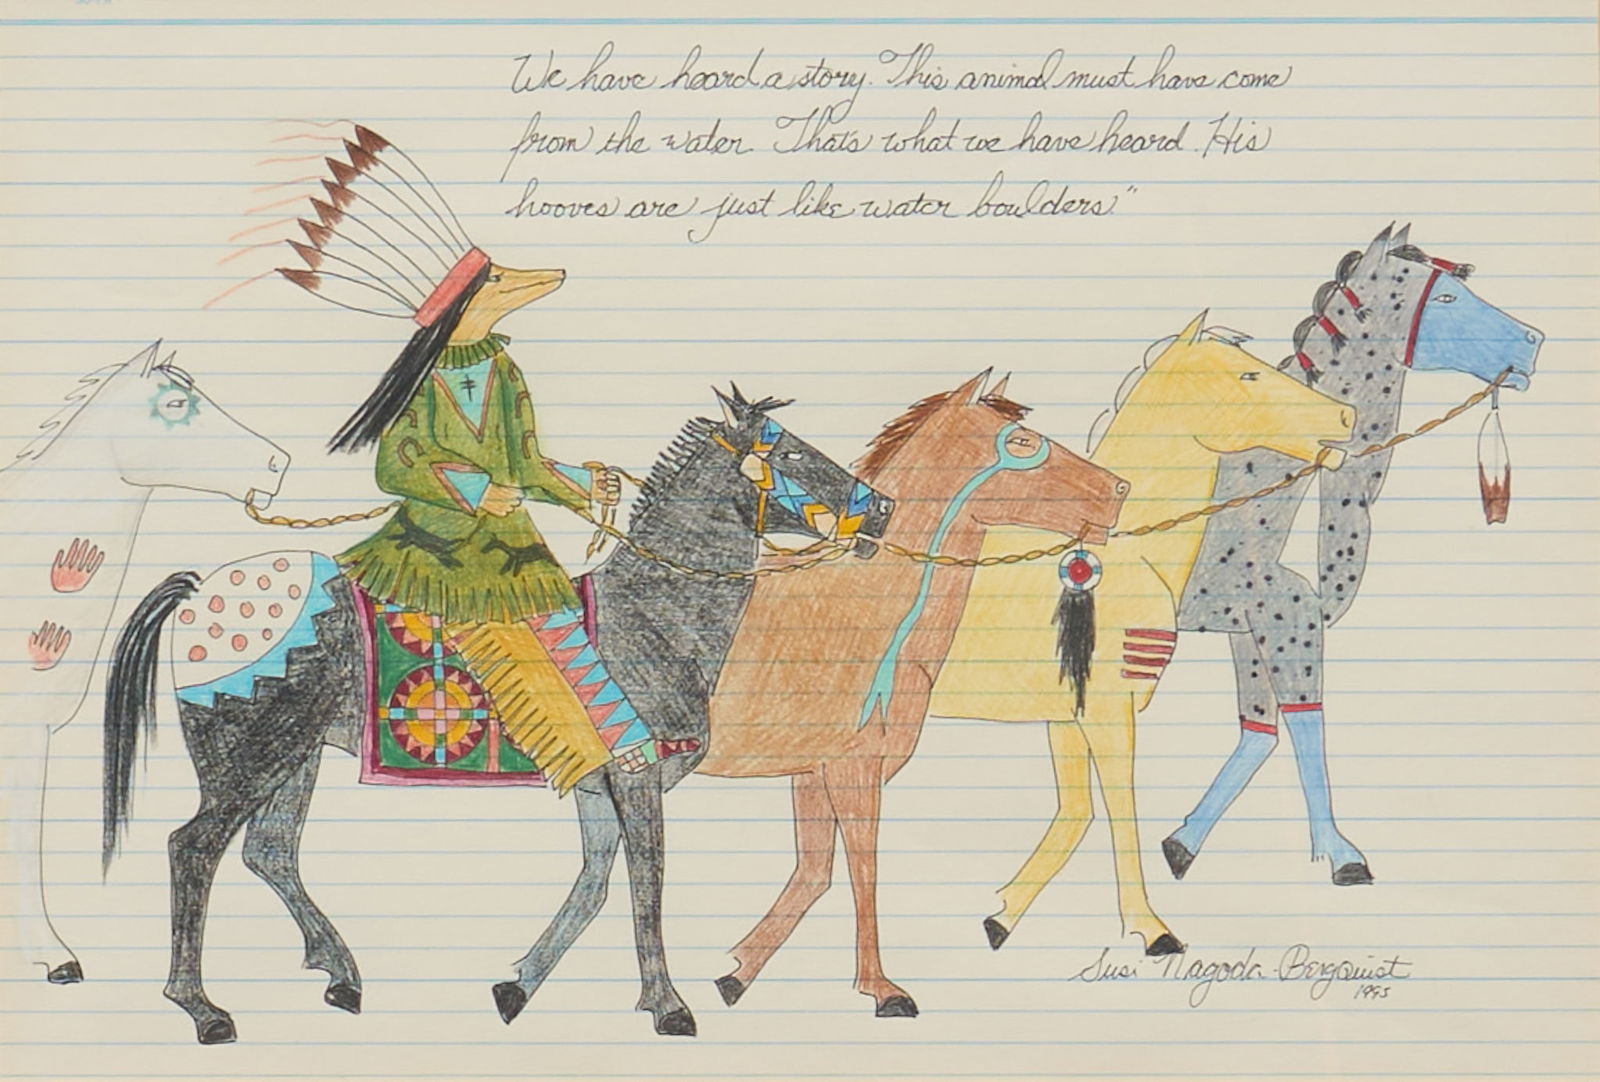 We have heard a story. This animal must have come
from the water. That's what we have heard. His
hooves are just like water boulders."
Susi Nagoda-Bergquist
1995